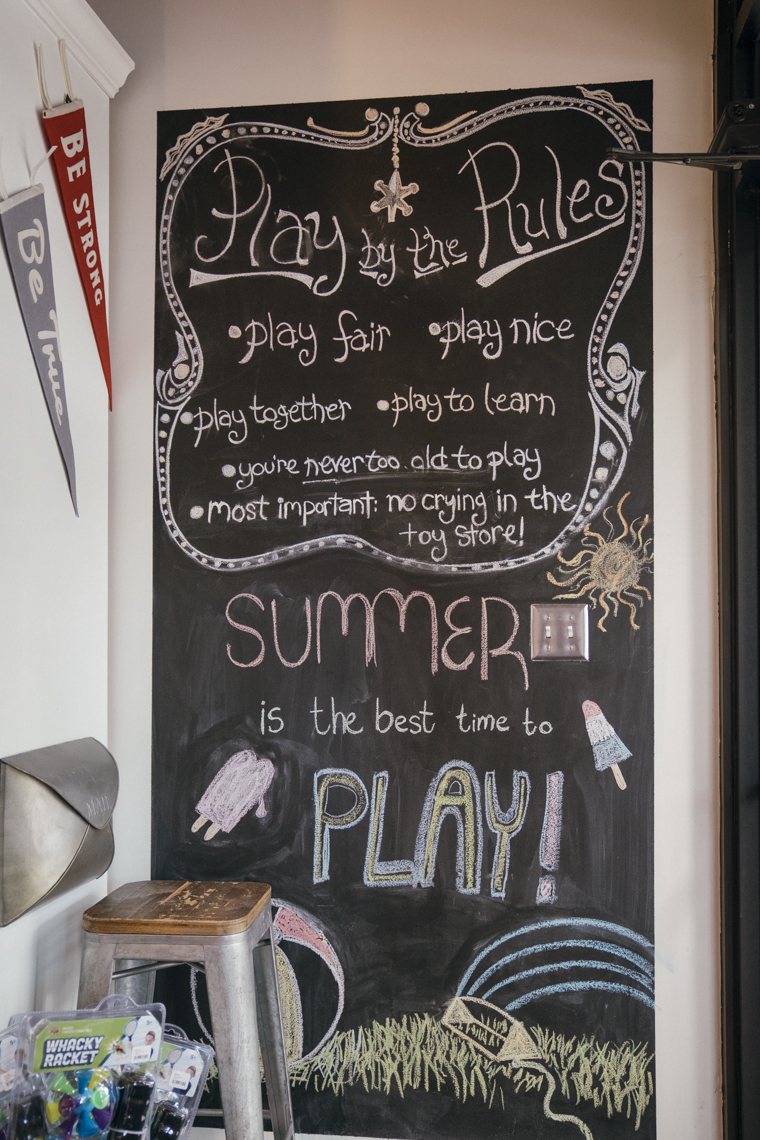 BE STRONG
Be True
Play by the Rules
•play fair •play nice
•play together •play to learn
•you're never too old to play
•most important: no crying in the
toy store!
SUMMER
is the best time to
PLAY!
MAIL
WHACKY
RACKET